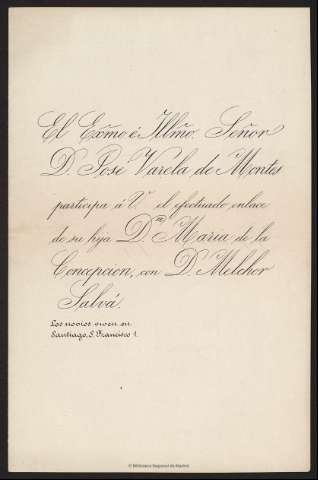 El Exmo é Illmo. Señor
D. José Varela de Montes
participa á V. el efectuado enlace
de su hija Dña Maria de la
Concepcion, con D. Melchor
Salvá.
Los novios viven en
Santiago, S. Francisco 1.
© Biblioteca Regional de Madrid